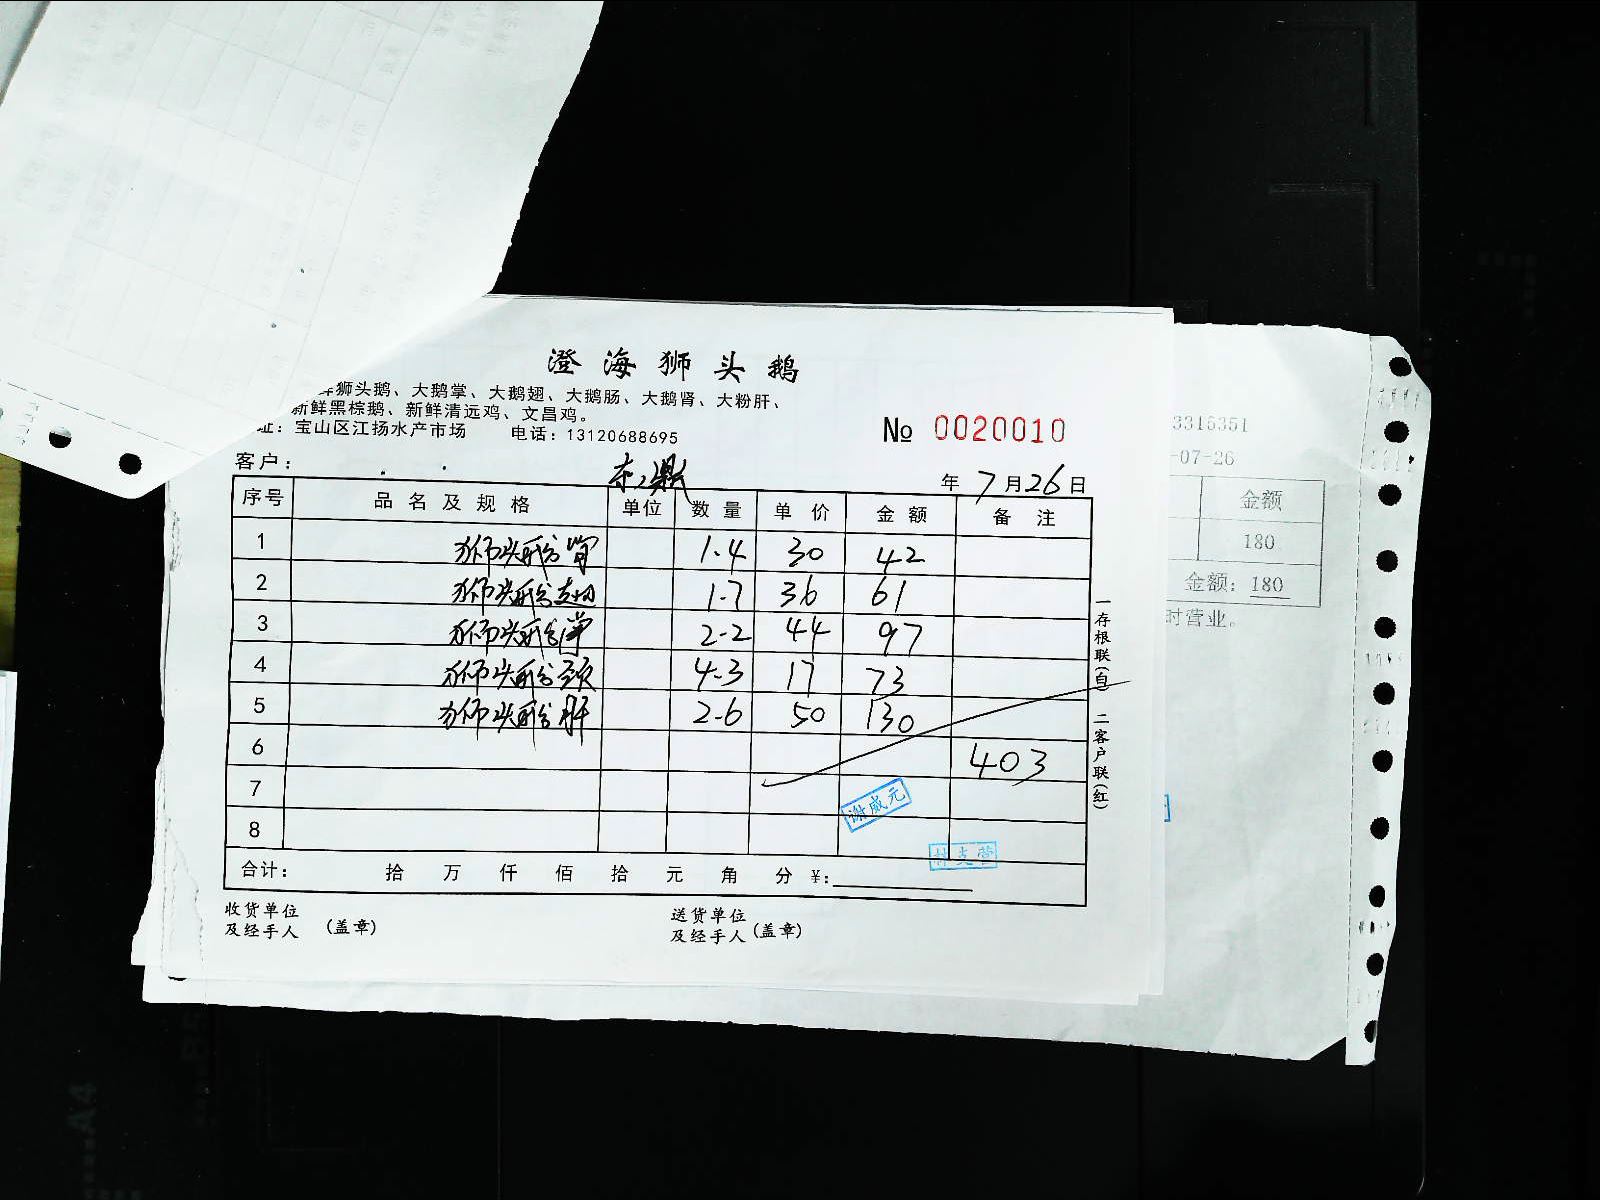 澄海狮头鹅
鲜狮头鹅、大鹅掌、大鹅翅、大鹅肠、大鹅肾、大粉肝、
新鲜黑棕鹅、新鲜清远鸡、文昌鸡。
址：宝山区江扬水产市场 电话：13120688695
№ 0020010
客户：
年 7月26日
序号 品名及规格 单位 数量 单价 金额 备注
1 狮头鹅肾 1.4 30 42
2 狮头鹅翅 1.7 36 61
3 狮头鹅掌 2-2 44 97
4 狮头鹅颈 4-3 17 73
5 狮头鹅肝 2-6 50 130
6 403
7
8
谢威元
合计： 拾 万 仟 佰 拾 元 角 分 ¥：
收货单位
及经手人 (盖章)
送货单位
及经手人 (盖章)
一存根联(白) 二客户联(红)
3315351
-07-26
金额
180
金额：180
时营业。
A4